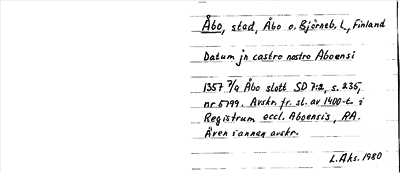 Åbo, stad, Åbo o. Björneb. L, Finland
Datum jn castro nostro Aboensi
1357 7/9 Åbo slott SD 7:2, s. 235,
nr 5799. Avskr. fr. sl. av 1400-t. i
Registrum eccl. Aboensis, RA.
Även i annan avskr.
L. Aks. 1980